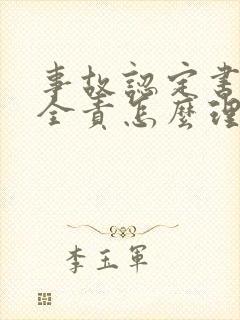 事故認定書
全責怎麼理
李玉軍